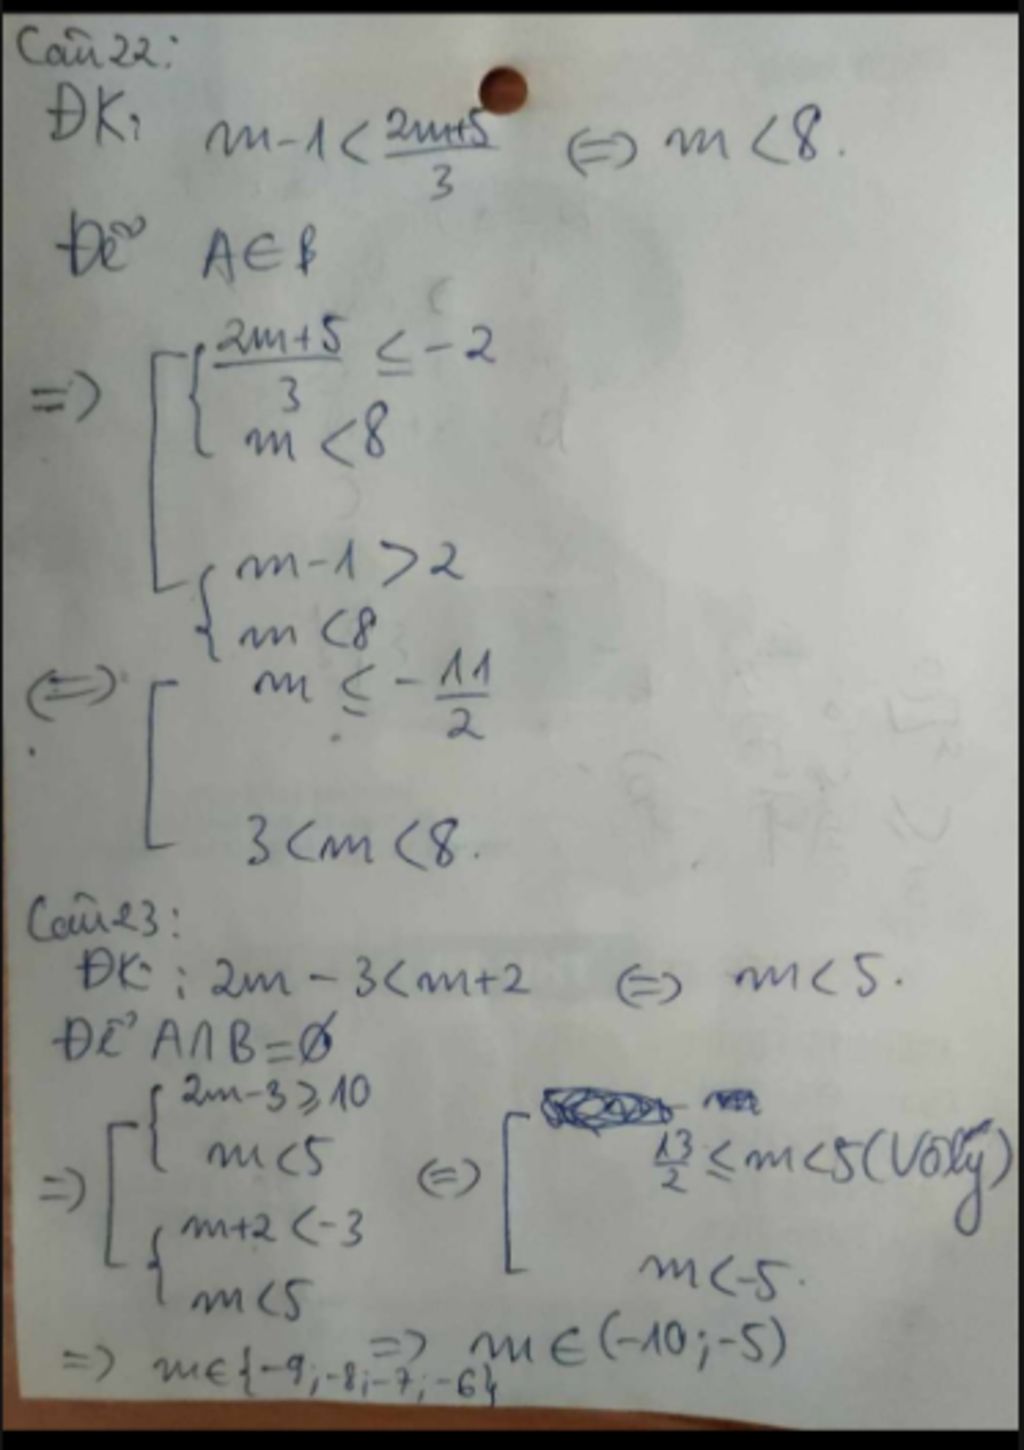 Câu 22:
ĐK: m-1 < \frac{2m+5}{3} (=) m < 8.
Để A ∈ B
=) [ { \frac{2m+5}{3} ≤ -2
m < 8
{ m-1 > 2
m < 8
(=) [ m ≤ -\frac{11}{2}
3 < m < 8.
Câu 23:
ĐK: 2m - 3 < m+2 (=) m < 5.
Để A∩B=∅
=) [ { 2m-3 ≥ 10
m < 5
{ m+2 < -3
m < 5
(=) [ \frac{13}{2} ≤ m < 5 (Vô lý)
m < -5.
=) m ∈ (-10; -5)
=) m ∈ {-9; -8; -7; -6}